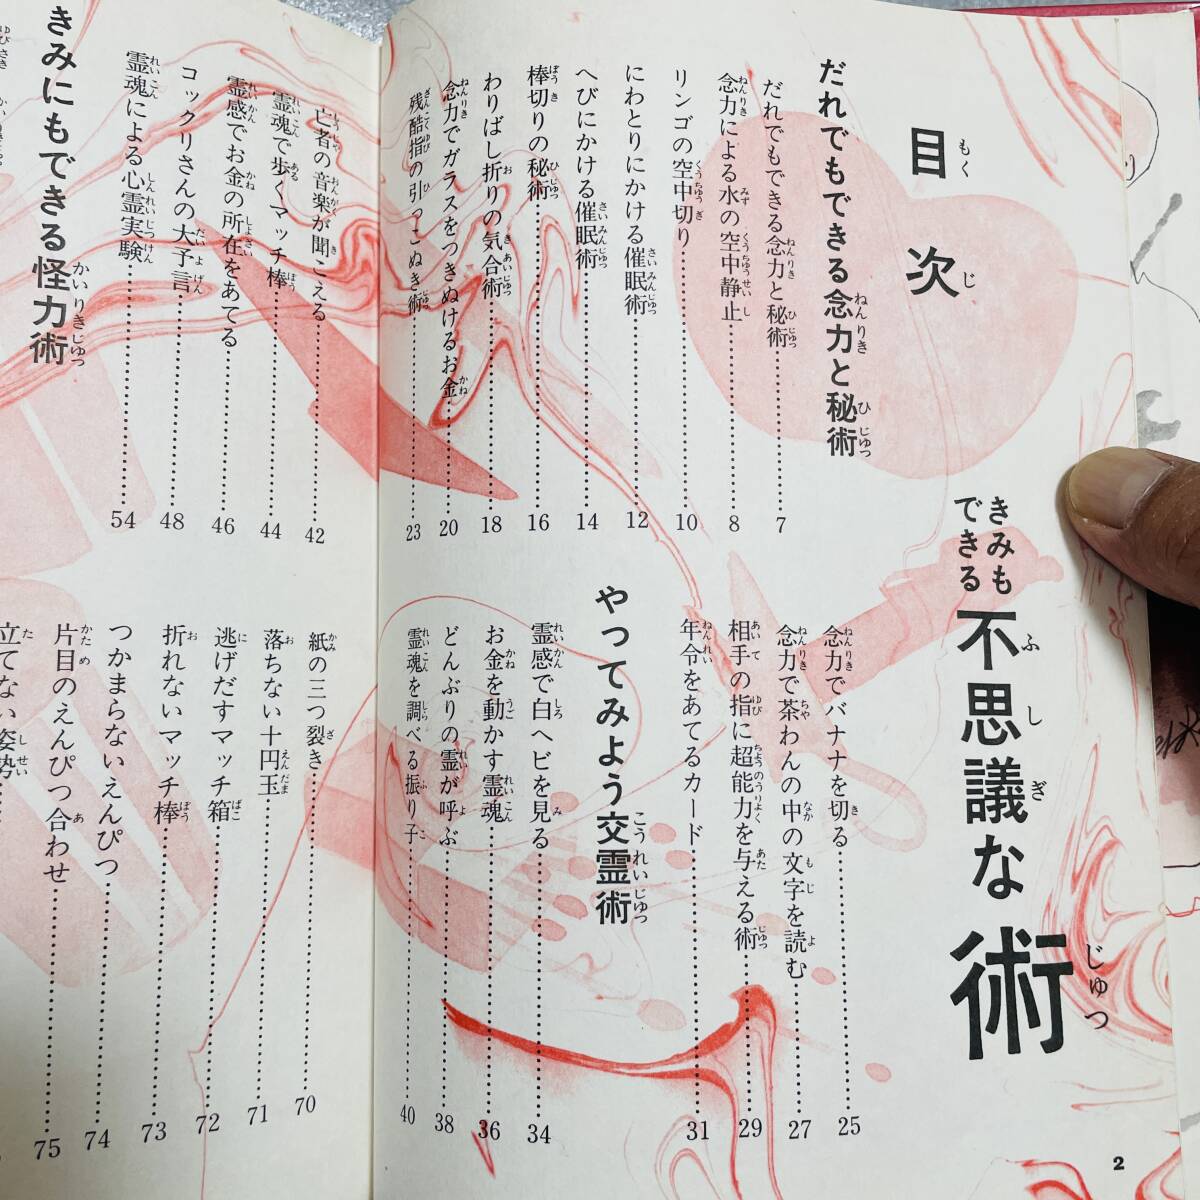 目次
きみもできる不思議な術
だれでもできる念力と秘術
だれでもできる念力と秘術……7
念力による水の空中静止……8
リンゴの空中切り……10
にわとりにかける催眠術……12
へびにかける催眠術……14
棒切りの秘術……16
わりばし折りの気合術……18
念力でガラスをつきぬけるお金……20
残酷指の引っこぬき術……23
念力でバナナを切る……25
念力で茶わんの中の文字を読む……27
相手の指に超能力を与える術……29
年令をあてるカード……31
やってみよう交霊術
霊感で白ヘビを見る……34
お金を動かす霊魂……36
どんぶりの霊が呼ぶ……38
霊魂を調べる振り子……40
亡者の音楽が聞こえる……42
霊魂で歩くマッチ棒……44
霊感でお金の所在をあてる……46
コックリさんの大予言……48
霊魂による心霊実験……54
きみにもできる怪力術
紙の三つ裂き……70
落ちない十円玉……71
逃げだすマッチ箱……72
折れないマッチ棒……73
つかまらないえんぴつ……74
片目のえんぴつ合わせ……75
立てない姿勢……
2